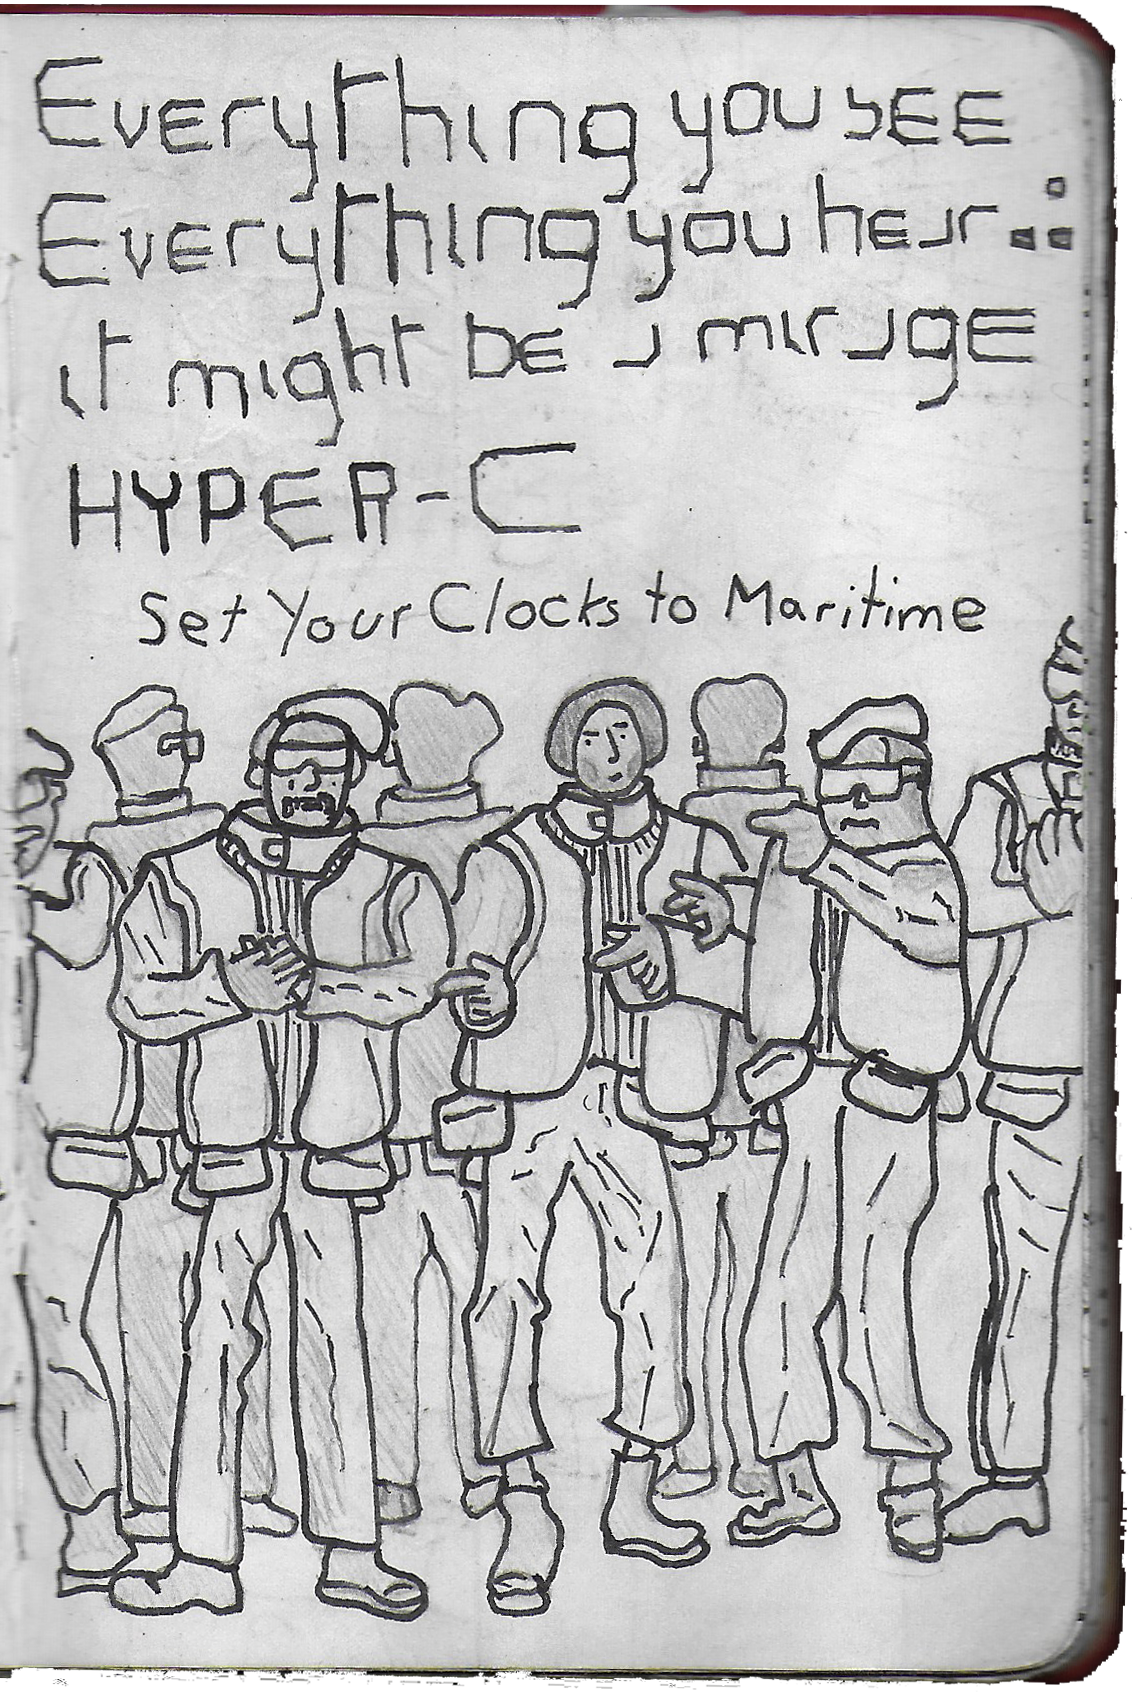 Everything you see
Everything you hear∴
it might be a mirage
HYPER-C
Set Your Clocks to Maritime